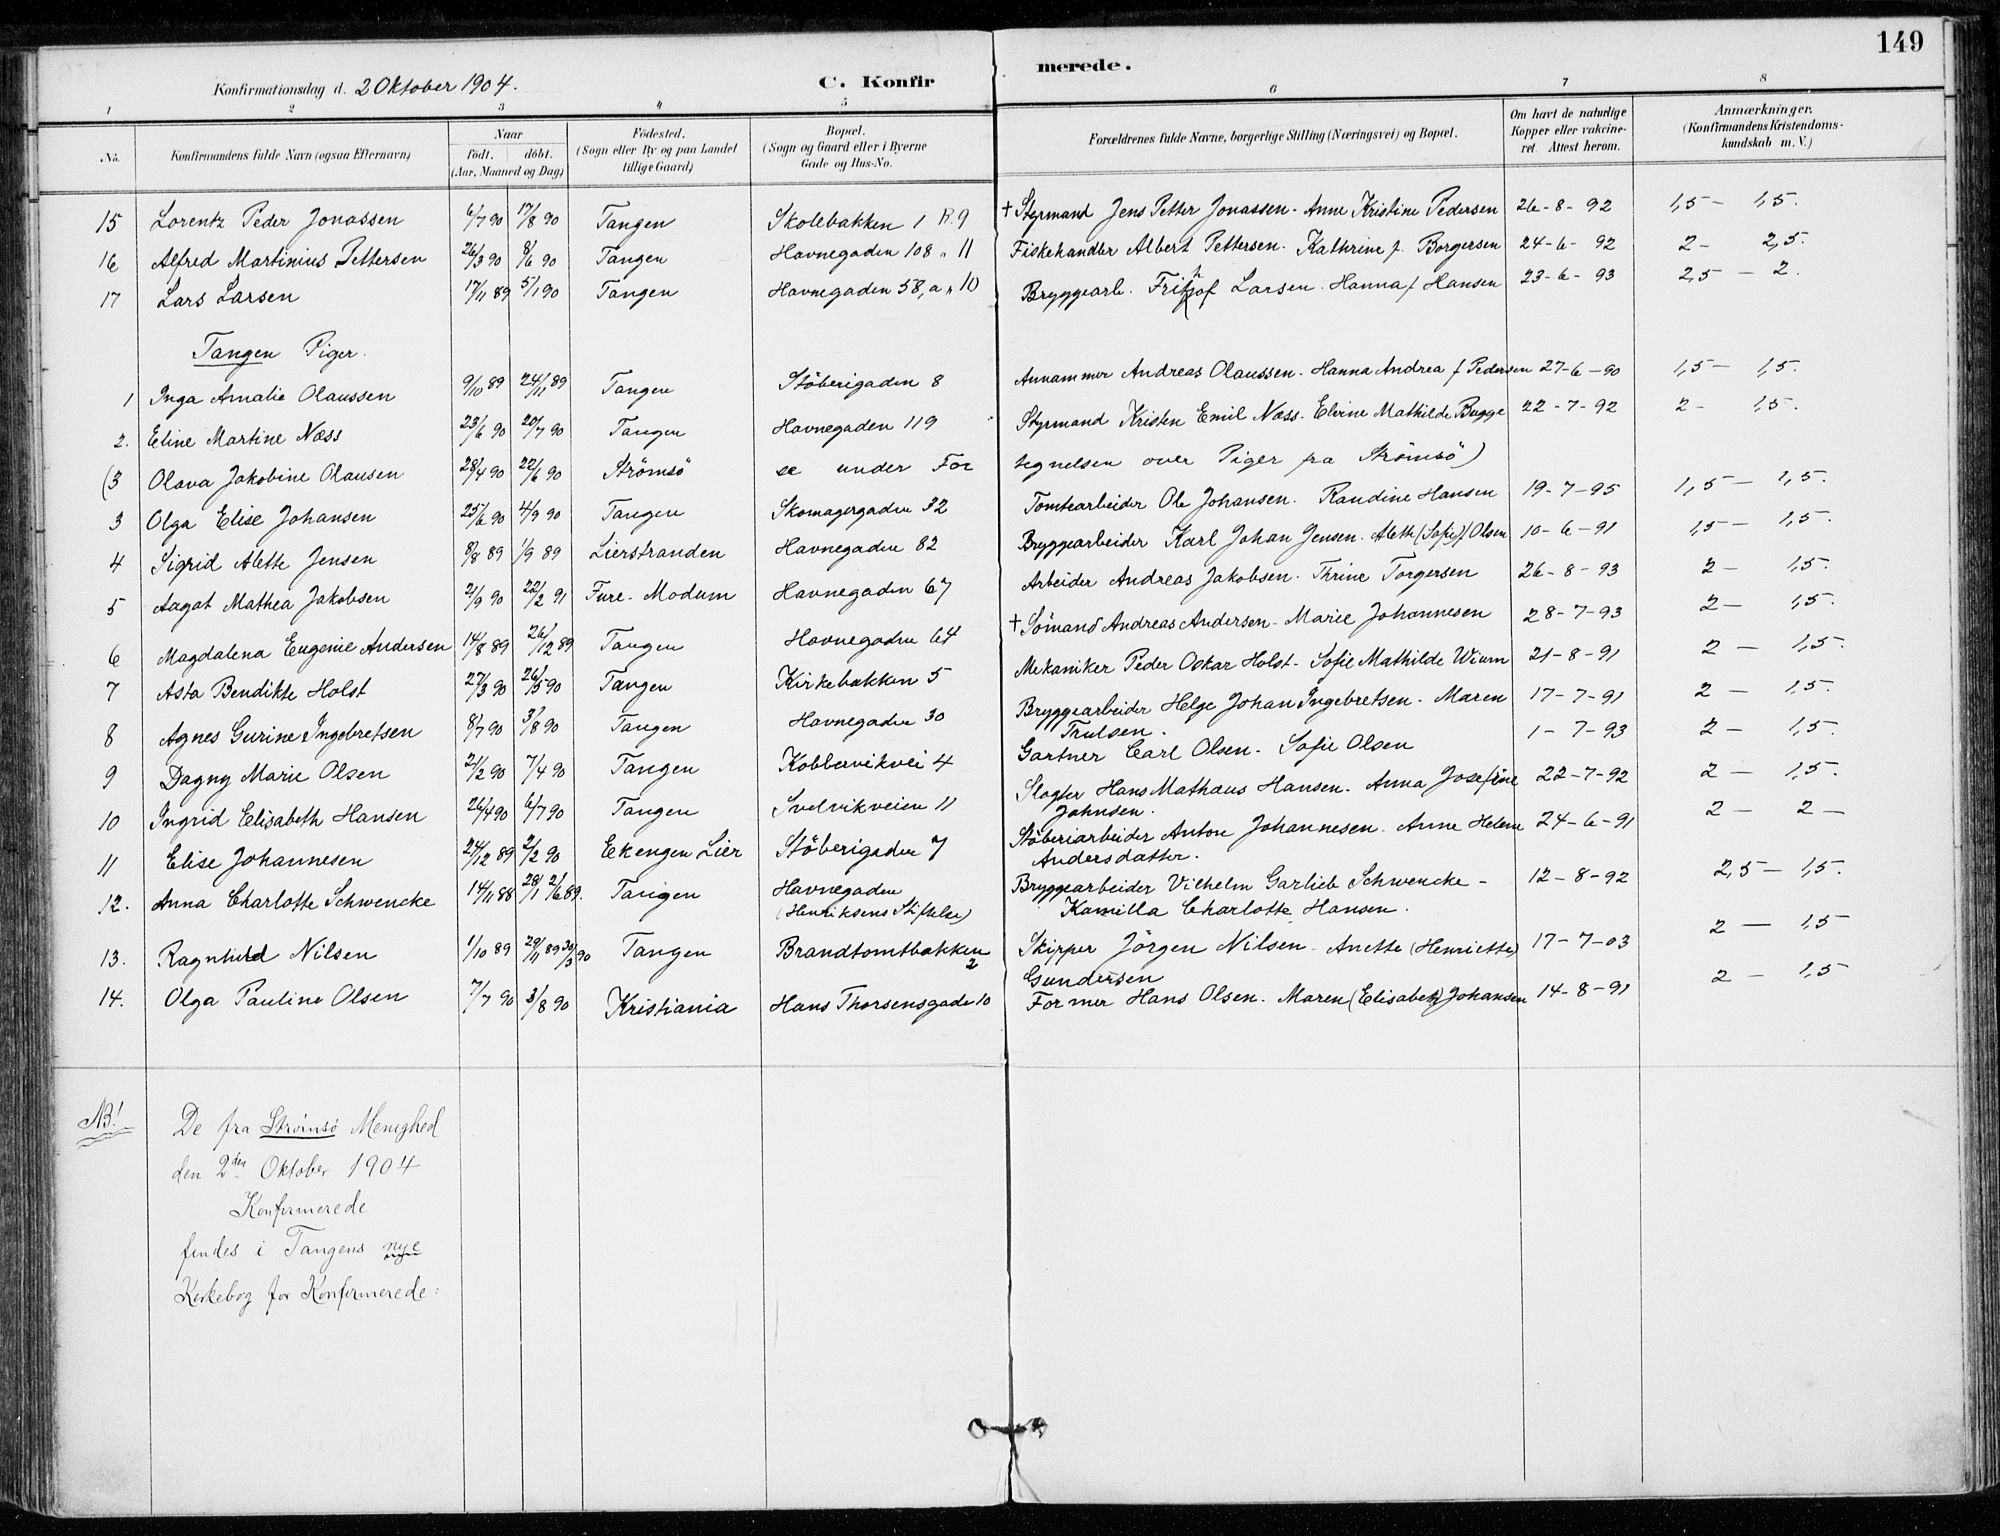 149
Konfirmationsdag d. 2 Oktober 1904. C. Konfir merede.
1 2 3 4 5 6 7 8
No. Konfirmandens fulde Navn (ogsaa Efternavn) Naar födt. döbt. (Aar, Maaned og Dag) Födested. (Sogn eller By og paa Landet tillige Gaard) Bopæl. (Sogn og Gaard eller i Byerne Gade og Hus-No. Forældrenes fulde Navne, borgerlige Stilling (Næringsvei) og Bopæl. Om havt de naturlige Kopper eller vakcineret. Attest herom. Anmærkninger. (Konfirmandens Kristendomskundskab m. V.)
15 Lorentz Peder Jonassen 6/7 90 17/8 90 Tangen Skolebakken 1 R. 9 + Styrmand Jens Petter Jonassen - Anne Kristine Pedersen 26-8-92 1,5 - 1,5.
16 Alfred Martinius Pettersen 26/3 90 8/6 90 Tangen Havnegaden 108 " 11 Fiskehandler Albert Pettersen. Kathrine f. Borgersen 24-6-92 2- 2,5.
17 Lars Larsen 17/11 89 5/1 90 Tangen Havnegaden 58, a " 10 Bryggearb. Frithjof Larsen. Hanna f Hansen 23-6-93 2,5 - 2.
Tangen Piger.
1 Inga Amalie Olaussen 9/10 89 24/11 89 Tangen Stöberigaden 8 Andreas Olaussen - Hanna Andrea f Pedersen 27-6-90 1,5 - 1,5.
2. Eline Martine Næss 23/6 90 20/7 90 Tangen Havnegaden 119 Styrmand Kristen Emil Næss. Elvine Mathilde Bugge 22-7-92 2- 1,5.
(3 Olava Jakobine Olausen 28/4 90 22/6 90 Strömsö se under For tegnelsen over Piger fra Strömsö)
3 Olga Elise Johansen 25/6 90 4/9 90 Tangen Skomagergaden 32 Tomtearbeider Ole Johansen. Randine Hansen 19-7-95 1,5 - 1,5.
4 Sigrid Alette Jensen 8/8 89 1/9 89 Lierstranden Havnegaden 82 Bryggearbeider Karl Johan Jensen. Aleth (Sofie) f Olsen 10-6-91 1,5 - 1,5.
5 Aagot Mathea Jakobsen 2/9 90 22/2 91 Fure - Modum Havnegaden 67 Arbeider Andreas Jakobsen. Thrine Torgersen 26-8-93 2- 1,5.
6 Magdalena Eugenie Andersen 14/8 89 26/12 89 Tangen Havnegaden 64 + Sömand Andreas Andersen - Marie Johannesen 28-7-93 2- 1,5.
7 Asta Bendikte Holst 27/3 90 26/5 90 Tangen Kirkebakken 5 Mekaniker Peder Oskar Holst - Sofie Mathilde Wium 21-8-91 2 - 1,5.
8 Agnes Gurine Ingebretsen 8/7 90 3/8 90 Tangen Havnegaden 30 Bryggearbeider Helge Johan Ingebretsen. Maren 17-7-91 2 - 1,5.
Trulsen.
9 Dagny Marie Olsen 21/2 90 7/4 90 Tangen Kobbervikvei 4 Gartner Carl Olsen - Sofie Olsen 1-7-93 2 - 1,5.
10 Ingrid Elisabeth Hansen 26/4 90 6/7 90 Tangen Svelvikveien 11 Slagter Hans Mathæus Hansen. Anna Josefine 22-7-92 2 - 1,5.
Johnsen.
11 Elise Johannesen 24/12 89 2/2 90 Ekengen Lier Stöberigaden 7 Stöberiarbeider Anton Johannesen. Anne Helene 24-6-91 2 - 2 -
Andersdatter.
12. Anna Charlotte Schwencke 14/11 88 28/1 2/6 89. Tangen Havnegaden (Henriksens Stiftelse) Bryggearbeider Vilhelm Garlieb Schwencke - 12-8-92 2,5 - 1,5.
Kamilla Charlotte Hansen.
13. Ragnhild Nilsen 1/10 89 29/11 89 30/3 90 Tangen Brandtomtbakken 2 Skipper Jörgen Nilsen - Anette (Henriette) 17-7-03 2 - 1,5
Gundersen
14. Olga Pauline Olsen 7/7 90 3/8 90 Kristiania Hans Thorsensgade 10 Former Hans Olsen. Maren (Elisabeth) Johansen 14-8-91 2 - 1,5
NB! De fra Strömsö Menighed
den 2den Oktober 1904
Konfirmerede
findes i Tangens nye
Kirkebog for Konfirmerede: